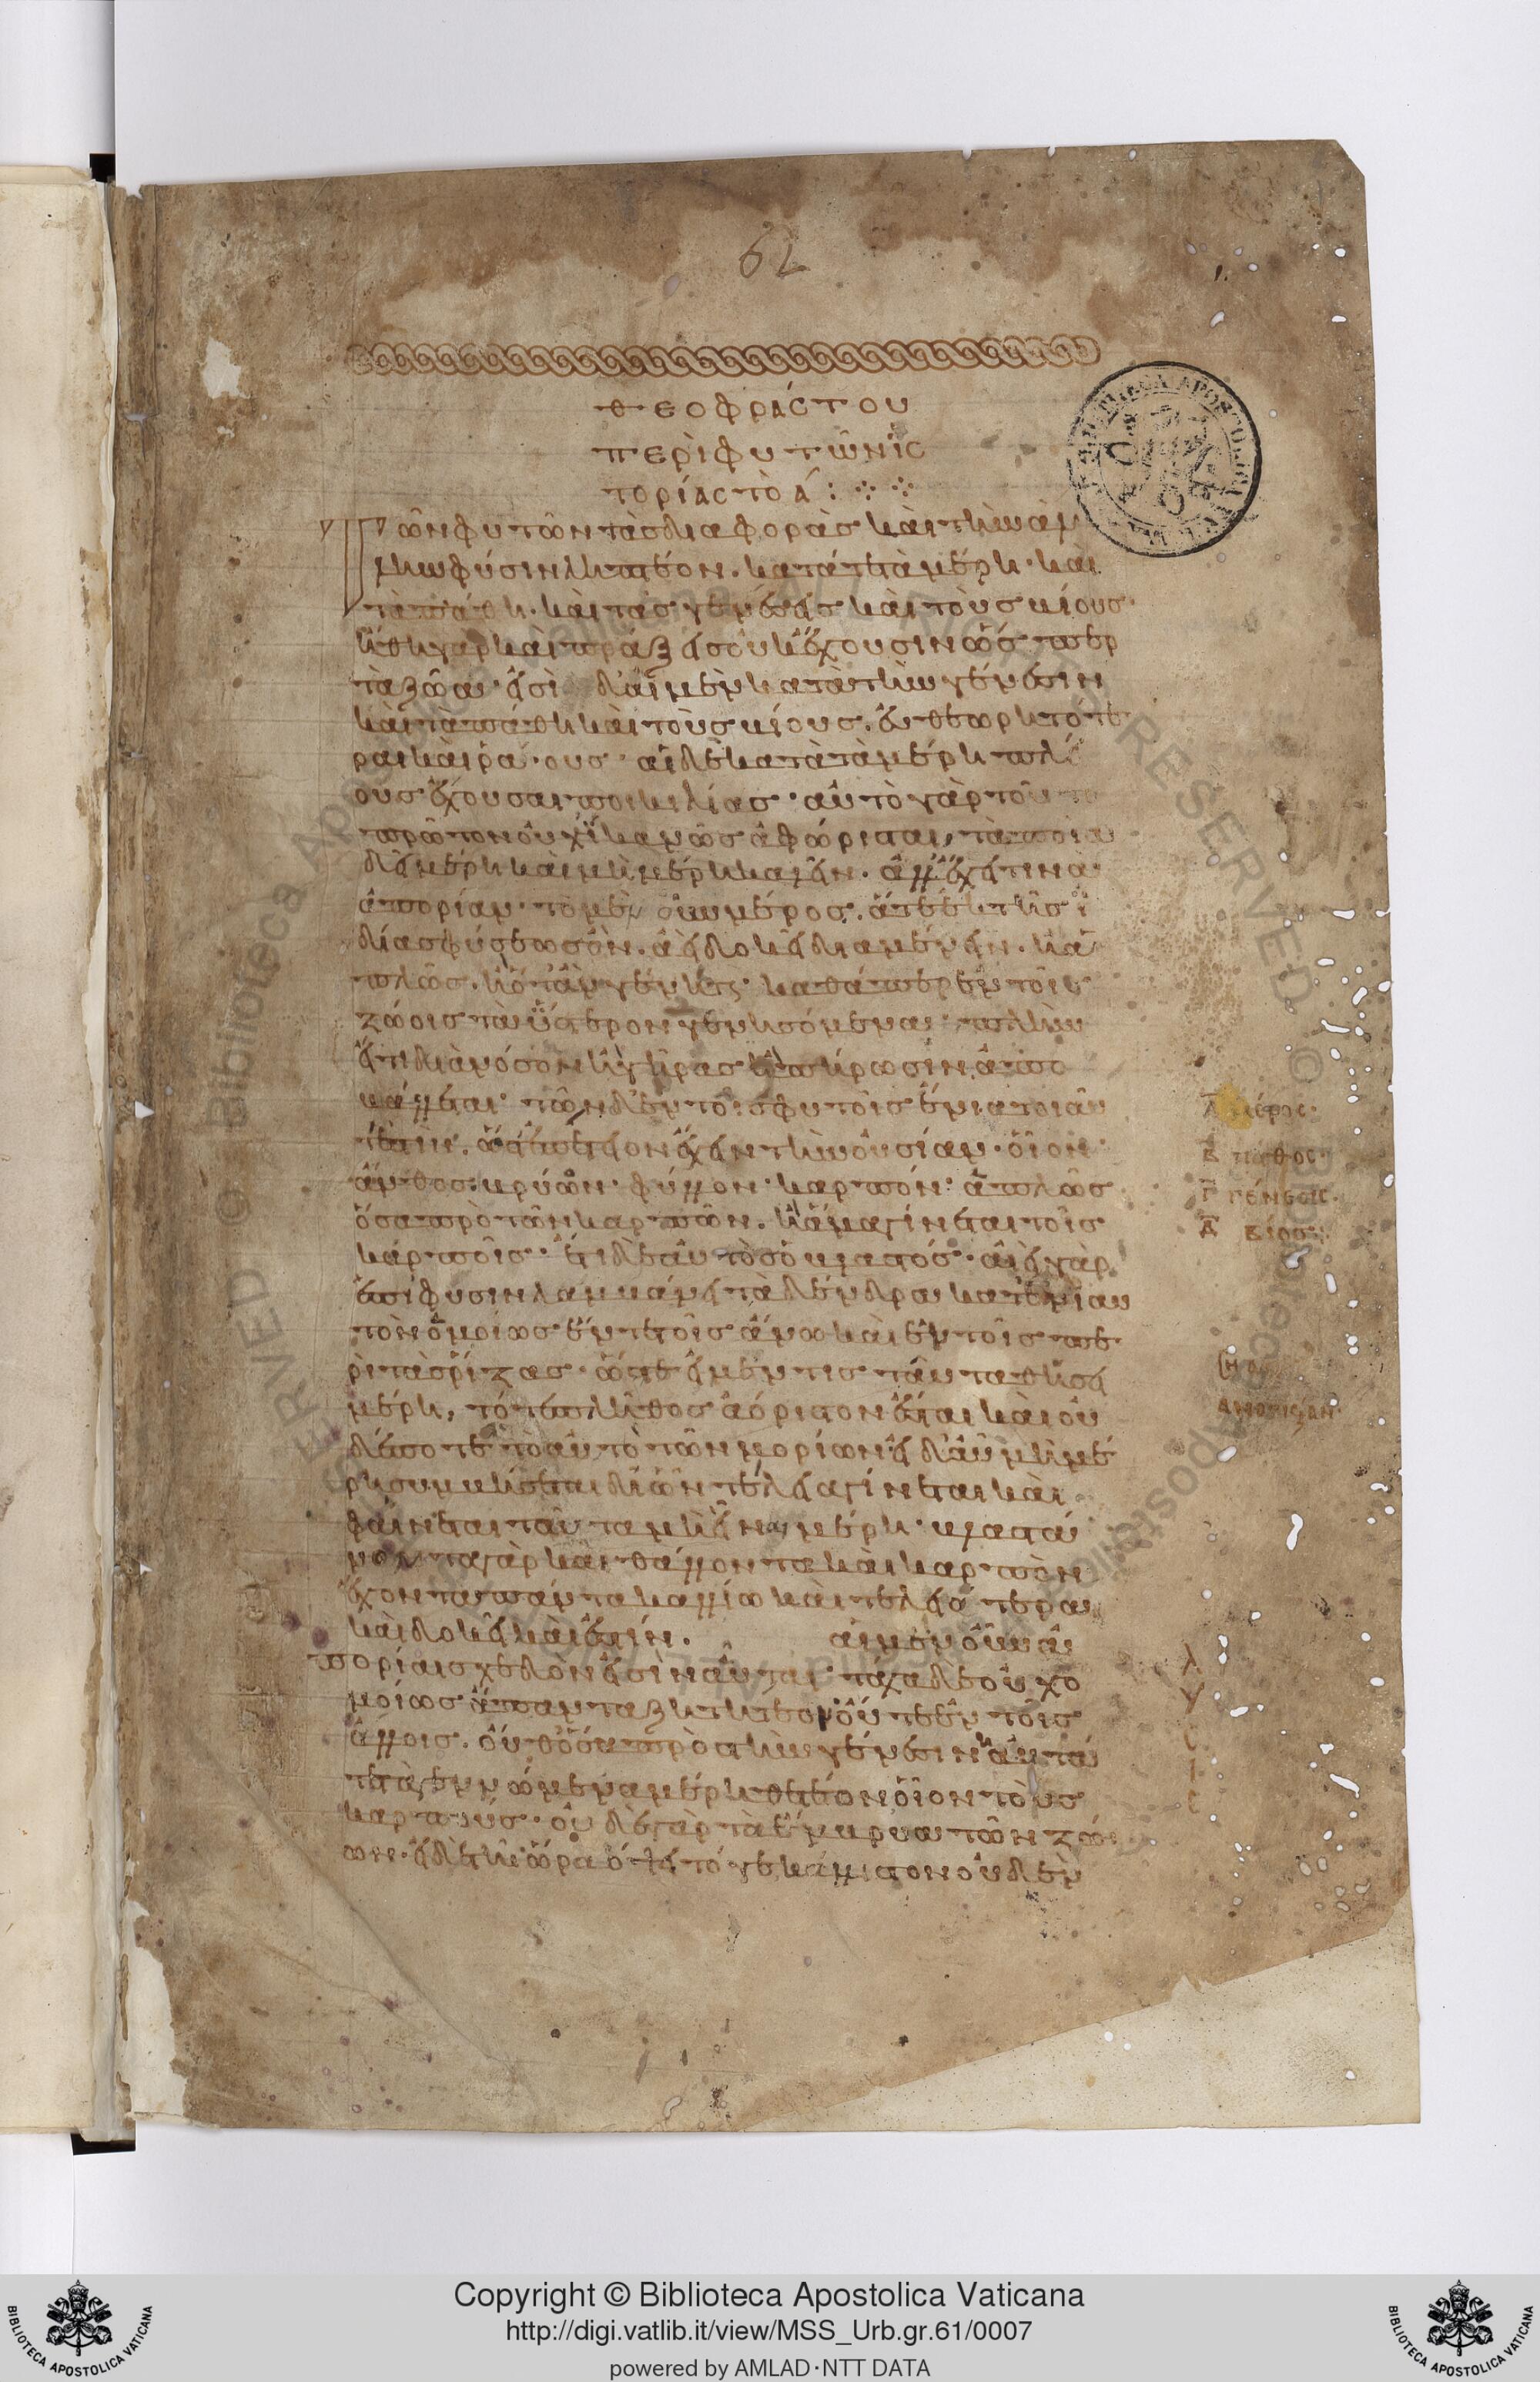 62
ΘΕΟΦΡΆCΤΟΥ
ΠΕΡῚ ΦΥΤΩ͂Ν ἹC
ΤΟΡΊΑC ΤῸ Ά :
Τῶν φυτῶν τὰς διαφορὰς καὶ τὴν ἄλ
λην φύσιν ληπτέον. κατά τε τὰ μέρη· καὶ
τὰ πάθη· καὶ τὰς γενέσεις καὶ τοὺς βίους·
ἤθη γὰρ καὶ πράξεις οὐκ ἔχουσιν ὥσπερ
τὰ ζῶα· εἰσὶ δ' αἱ μὲν κατὰ τὴν γένεσιν
καὶ τὰ πάθη καὶ τοὺς βίους. εὐθεωρητότε
ραι καὶ ῥά·ους· αἱ δὲ κατὰ τὰ μέρη πλεί
ους ἔχουσαι ποικιλίας· αὐτὸ γὰρ τοῦτο
πρῶτον οὐχ ἱκανῶς ἀφώρισται, τὰ ποῖα
δεῖ μέρη καὶ μὴ μέρη καλεῖν. ἀλλ' ἔχει τινα
ἀπορίαν· τὸ μὲν οὖν μέρος. ἅτε ἐκ τῆς ἰ
δίας φύσεως ὂν. ἀεὶ δοκεῖ διαμένειν. ἢ ἁ
πλῶς. ἢ ὅταν γένηται· καθάπερ ἐν τοῖς
ζώοις τὰ ὕστερον γενησόμενα· πλὴν
εἴ τι διὰ νόσον ἢ γῆρας ἢ πήρωσιν ἀπο
βάλλεται· τῶν δ' ἐν τοῖς φυτοῖς ἔνια τοιαῦ
τ' ἐστὶν. ὥστ' ἐπέτειον ἔχειν τὴν οὐσίαν· οἷον
ἄνθος· βρύον· φύλλον· καρπόν· ἁπλῶς
ὅσα πρὸ τῶν καρπῶν. ἢ ἅμα γίνεται τοῖς
καρποῖς· ἔτι δὲ αὐτὸς ὁ βλαστός· αἰεὶ γὰρ
ἐπίφυσιν λαμβάνει τὰ δένδρα κατ' ἐνιαυ
τὸν ὁμοίως ἔν τε τοῖς ἄνω καὶ ἐν τοῖς πε
ρὶ τὰς ῥίζας· ὥστε εἰ μέν τις ταῦτα θήσει
μέρη, τό τε πλῆθος ἀόριστον ἔσται καὶ οὐ
δέποτε τὸ αὐτὸ τῶν μορίων εἰ δ' αὖ μὴ μέ
ρη συμβήσεται δι' ὧν τέλεια γίνεται καὶ
φαίνεται ταῦτα μὴ εἶναι μέρη· βλαστά
νοντα γὰρ καὶ θάλλοντα καὶ καρπὸν
ἔχοντα πάντα καλλίω καὶ τελειότερα
καὶ δοκεῖ καὶ ἔστιν. αἱ μὲν οὖν ἀ
πορίαι σχεδὸν εἰσὶν αὗται· τάχα δὲ οὐχ ὁ
μοίως ἅπαντα ζητητέον οὔτε ἐν τοῖς
ἄλλοις. οὔθ' ὅσα πρὸς τὴν γένεσιν αὐτά
τε τὰ γεννώμενα μέρη θετέον οἷον τοὺς
καρπούς· οὐδὲ γὰρ τὰ ἔμβρυα τῶν ζώ
ων· εἰ δὲ τῇ ὥρα ὄψει τό γε κάλλιστον οὐδὲν
Α μέρος·
Β πάθος·
Γ ΓΈΝΕCΙC·
Δ ΒΊΟC·
Copyright © Biblioteca Apostolica Vaticana
http://digi.vatlib.it/view/MSS_Urb.gr.61/0007
powered by AMLAD·NTT DATA
BIBLIOTECA APOSTOLICA VATICANA
BIBLIOTECA APOSTOLICA VATICANA